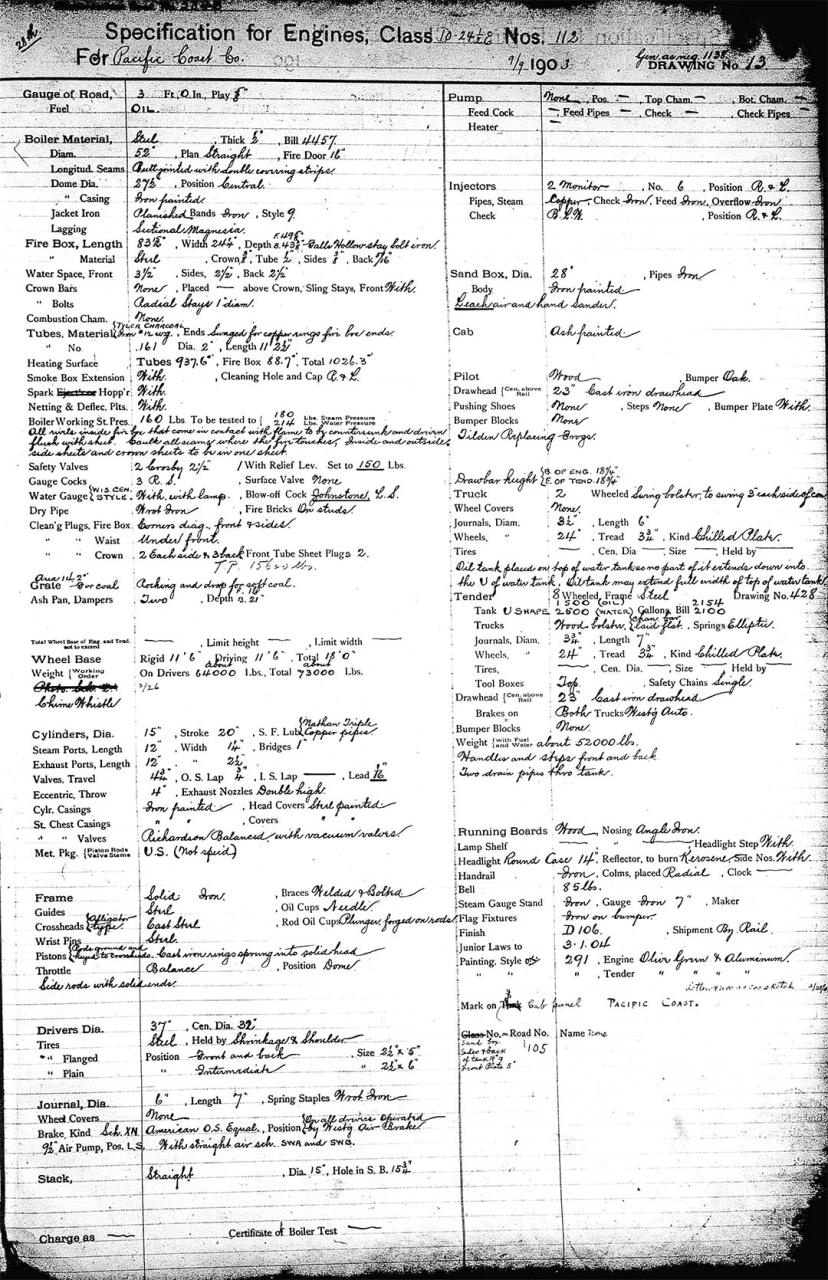 28th
Specification for Engines, Class 10-24 1/4 E Nos. 112
For Pacific Coast Co. 7/9 1903 DRAWING No. 13
Gauge of Road, 3 Ft, 0 In, Play
Fuel OIL.
Boiler Material, Steel, Thick 1/2", Bill 4457
Diam. 52", Plan Straight, Fire Door 16"
Longitud. Seams Butt jointed with double covering strips.
Dome Dia. 27 1/2", Position Central.
" Casing Iron painted.
Jacket Iron Planished Bands Iron, Style 9.
Lagging Sectional Magnesia.
Fire Box, Length 83 1/2", Width 24 1/4", Depth Falls Hollow stay bolt iron.
" Material Steel, Crown 3/8", Tube 1/2", Sides, Back 5/16"
Water Space, Front 3 1/2", Sides, 2 1/2", Back 2 1/2"
Crown Bars None, Placed — above Crown, Sling Stays, Front With.
" Bolts Radial Stays 1" diam.
Combustion Cham. None.
Tubes, Material TYLER CHARCOAL Iron #12 wg., Ends Swaged for copper rings fire box ends.
" No. 161 Dia. 2", Length 11' 2 1/2"
Heating Surface Tubes 937.6", Fire Box 88.7", Total 1026.3"
Smoke Box Extension With. , Cleaning Hole and Cap R. & L.
Spark Ejector Hopp'r With.
Netting & Deflec. Plts. With.
Boiler Working St. Pres. 160 Lbs To be tested to 180 Lbs. Steam Pressure 214 Lbs. Water Pressure
All rivets inside fire box that come in contact with flame to be countersunk and driven
flush with sheet. Caulk all seams where the fire touches, Inside and outside,
side sheets and crown sheets to be in one sheet.
Safety Valves 2 Crosby 2 1/2" 1 With Relief Lev. Set to 150 Lbs.
Gauge Cocks 3 R.S. , Surface Valve None
Water Gauge WIS. CEN. STYLE. With, with lamp. , Blow-off Cock Johnstone, L.S.
Dry Pipe Wrot Iron , Fire Bricks On studs.
Clean'g Plugs, Fire Box Corners diag., front & sides.
" " Waist Under front.
" " Crown 2 Each side & 3 back Front Tube Sheet Plugs 2.
Area 14.2"
Grate For coal Rocking and drop for soft coal.
Ash Pan, Dampers Two , Depth
Total Wheel Base of Eng. and Tend. not to exceed — , Limit height — , Limit width —
Wheel Base Rigid 11' 6", Driving 11' 6", Total 18' 0"
Weight Working Order On Drivers about 64000 Lbs., Total about 73000 Lbs.
3/26
Chime Whistle
Cylinders, Dia. 15", Stroke 20", S. F. Lub. Nathan Triple Copper pipes.
Steam Ports, Length 12", Width 1 1/4", Bridges 1"
Exhaust Ports, Length 12", " 2 1/2"
Valves, Travel 4 3/4", O. S. Lap 3/4", I. S. Lap —, Lead 1/16"
Eccentric, Throw 4", Exhaust Nozzles Double high.
Cylr. Casings Iron painted, Head Covers Steel painted
St. Chest Casings " " , Covers " "
" " Valves Richardson Balanced, with vacuum valves.
Met. Pkg. Piston Rods Valve Stems U.S. (Not speic'd)
Frame Solid Iron. , Braces Welded & Bolted
Guides Steel , Oil Cups Needle.
Crossheads Alligator type. Cast Steel , Rod Oil Cups Plunger, forged on rods.
Wrist Pins Steel.
Pistons Rods ground and keyed to crossheads. Cast iron rings sprung into solid head
Throttle Balance , Position Dome.
Side rods with solid ends.
Drivers Dia. 37", Cen. Dia. 32"
Tires Steel, Held by Shrinkage & Shoulder
" Flanged Position Front and back , Size 2 1/2" x 5"
" Plain " Intermediate " 2 1/2" x 6"
Journal, Dia. 6", Length 7", Spring Staples Wrot Iron
Wheel Covers None
Brake, Kind Sch. XN American O.S. Equal., Position On all drivers Operated by Westg Air Brake
9 1/2" Air Pump, Pos. L.S. With straight air sch. SWA and SWB.
Stack, Straight , Dia. 15", Hole in S. B. 15 3/4"
Charge as — Certificate of Boiler Test —
Pump None, Pos. — Top Cham. — Bot. Cham. —
Feed Cock — , Feed Pipes — , Check — , Check Pipes —
Heater —
Injectors 2 Monitor , No. 6 , Position R. & L.
Pipes, Steam Copper, Check Iron, Feed Iron, Overflow Iron
Check B.L.W. , Position R. & L.
Sand Box, Dia. 28" , Pipes Iron
Body Iron painted
Leach air and hand sander.
Cab Ash painted
Pilot Wood Bumper Oak.
Drawhead Cen. above Rail 23" Cast iron drawhead
Pushing Shoes None , Steps None , Bumper Plate With.
Bumper Blocks None
Tilden Replacing Frogs.
Drawbar height B. OF ENG. 18 1/4" F. OF TEND. 18 1/4"
Truck 2 Wheeled Swing bolster, to swing 3" each side of
Wheel Covers None.
Journals, Diam. 3 1/2", Length 6"
Wheels, " 24", Tread 3 3/4", Kind Chilled Plate.
Tires — , Cen. Dia — , Size — , Held by —
Oil tank placed on top of water tank so no part of it extends down into
the U of water tank, Oil tank may extend full width of top of water tank
Tender 8 Wheeled, Frame Steel Drawing No. 428
Tank U SHAPE 1500 (OIL) 2600 (WATER) Gallons, Bill 2154 2100
Trucks Wood bolster, laid flat. , Springs Elliptic.
Journals, Diam. 3 3/4", Length 7"
Wheels, " 24", Tread 3 3/4", Kind Chilled Plate.
Tires, — , Cen. Dia. — , Size — Held by —
Tool Boxes Top. , Safety Chains Single.
Drawhead Cen. above Rail 23" Cast iron drawhead
Brakes on Both Trucks Westg Auto.
Bumper Blocks None.
Weight with Fuel and Water about 52000 lbs.
Handles and steps front and back
Two drain pipes thro tank.
Running Boards Wood, Nosing Angle Iron.
Lamp Shelf — Headlight Step With.
Headlight Round Case 14", Reflector, to burn Kerosene, Side Nos. With.
Handrail Iron, Colms, placed Radial , Clock —
Bell 85 lbs.
Steam Gauge Stand Iron, Gauge Iron 7" , Maker
Flag Fixtures Iron on bumper.
Finish D 106. , Shipment By Rail.
Junior Laws to 3.1.04
Painting, Style 291, Engine Olive Green & Aluminum.
" " , Tender " " " "
Mark on Tank Cab panel PACIFIC COAST.
Class No. Road No. 105 Name None
Sand box
Sides & back
of tank
Front Plate 5"